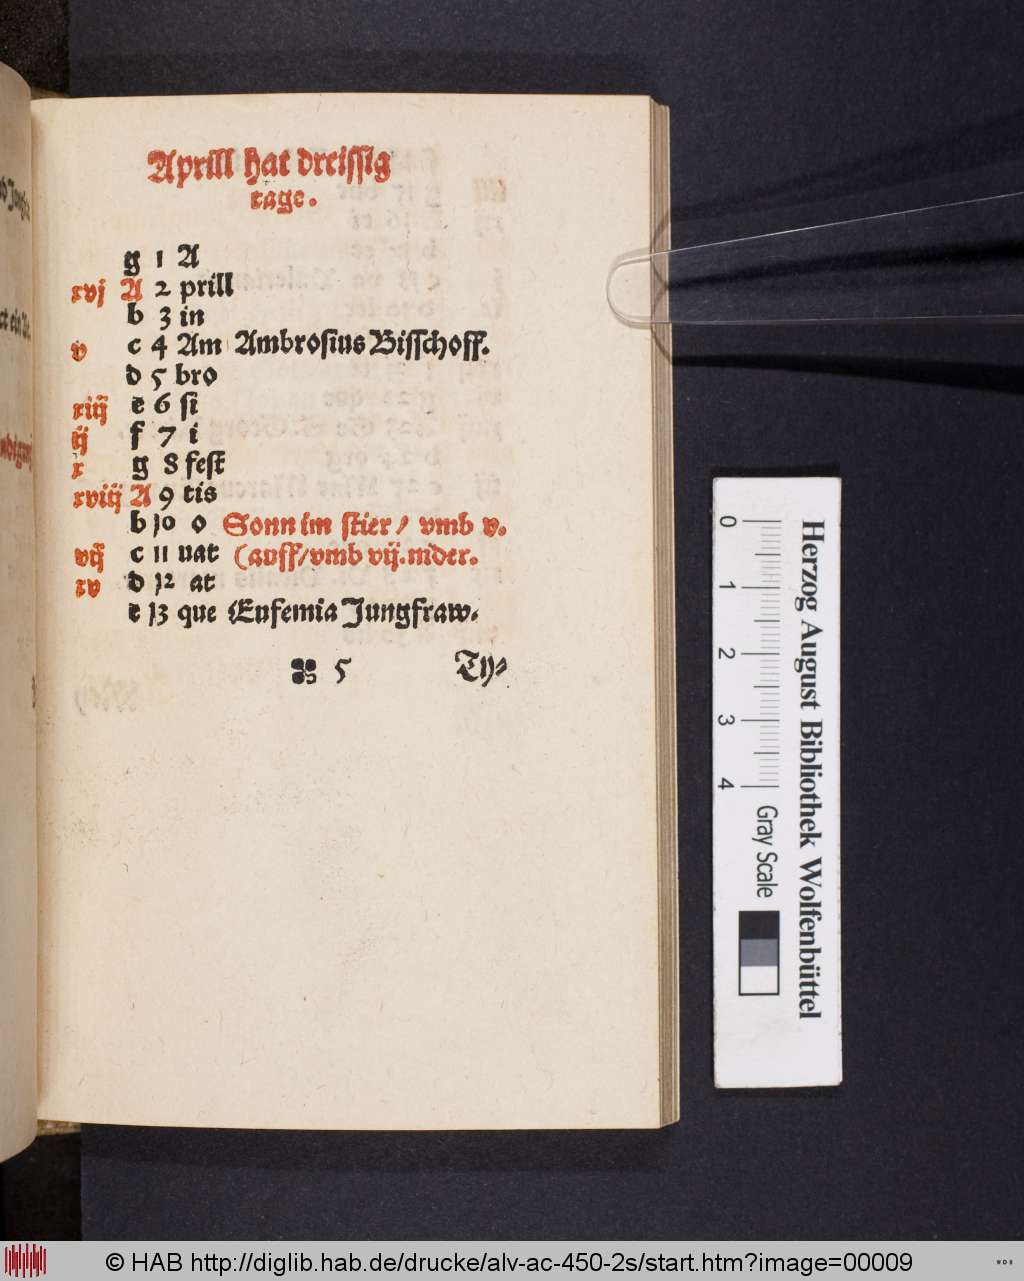 Aprill hat dreissig
tage.
g 1 A
xvj A 2 prill
b 3 in
v c 4 Am Ambrosius Bisschoff.
d 5 bro
xiij e 6 si
ij f 7 i
x g 8 fest
xviij A 9 tis
b 10 o Sonn im stier / vmb v.
vij c 11 uat (auff/vmb vij. nider.
xv d 12 at
e 13 que Eufemia Jungfraw.
5 Ty⸗
0 1 2 3 4 Gray Scale
Herzog August Bibliothek Wolfenbüttel
© HAB http://diglib.hab.de/drucke/alv-ac-450-2s/start.htm?image=00009